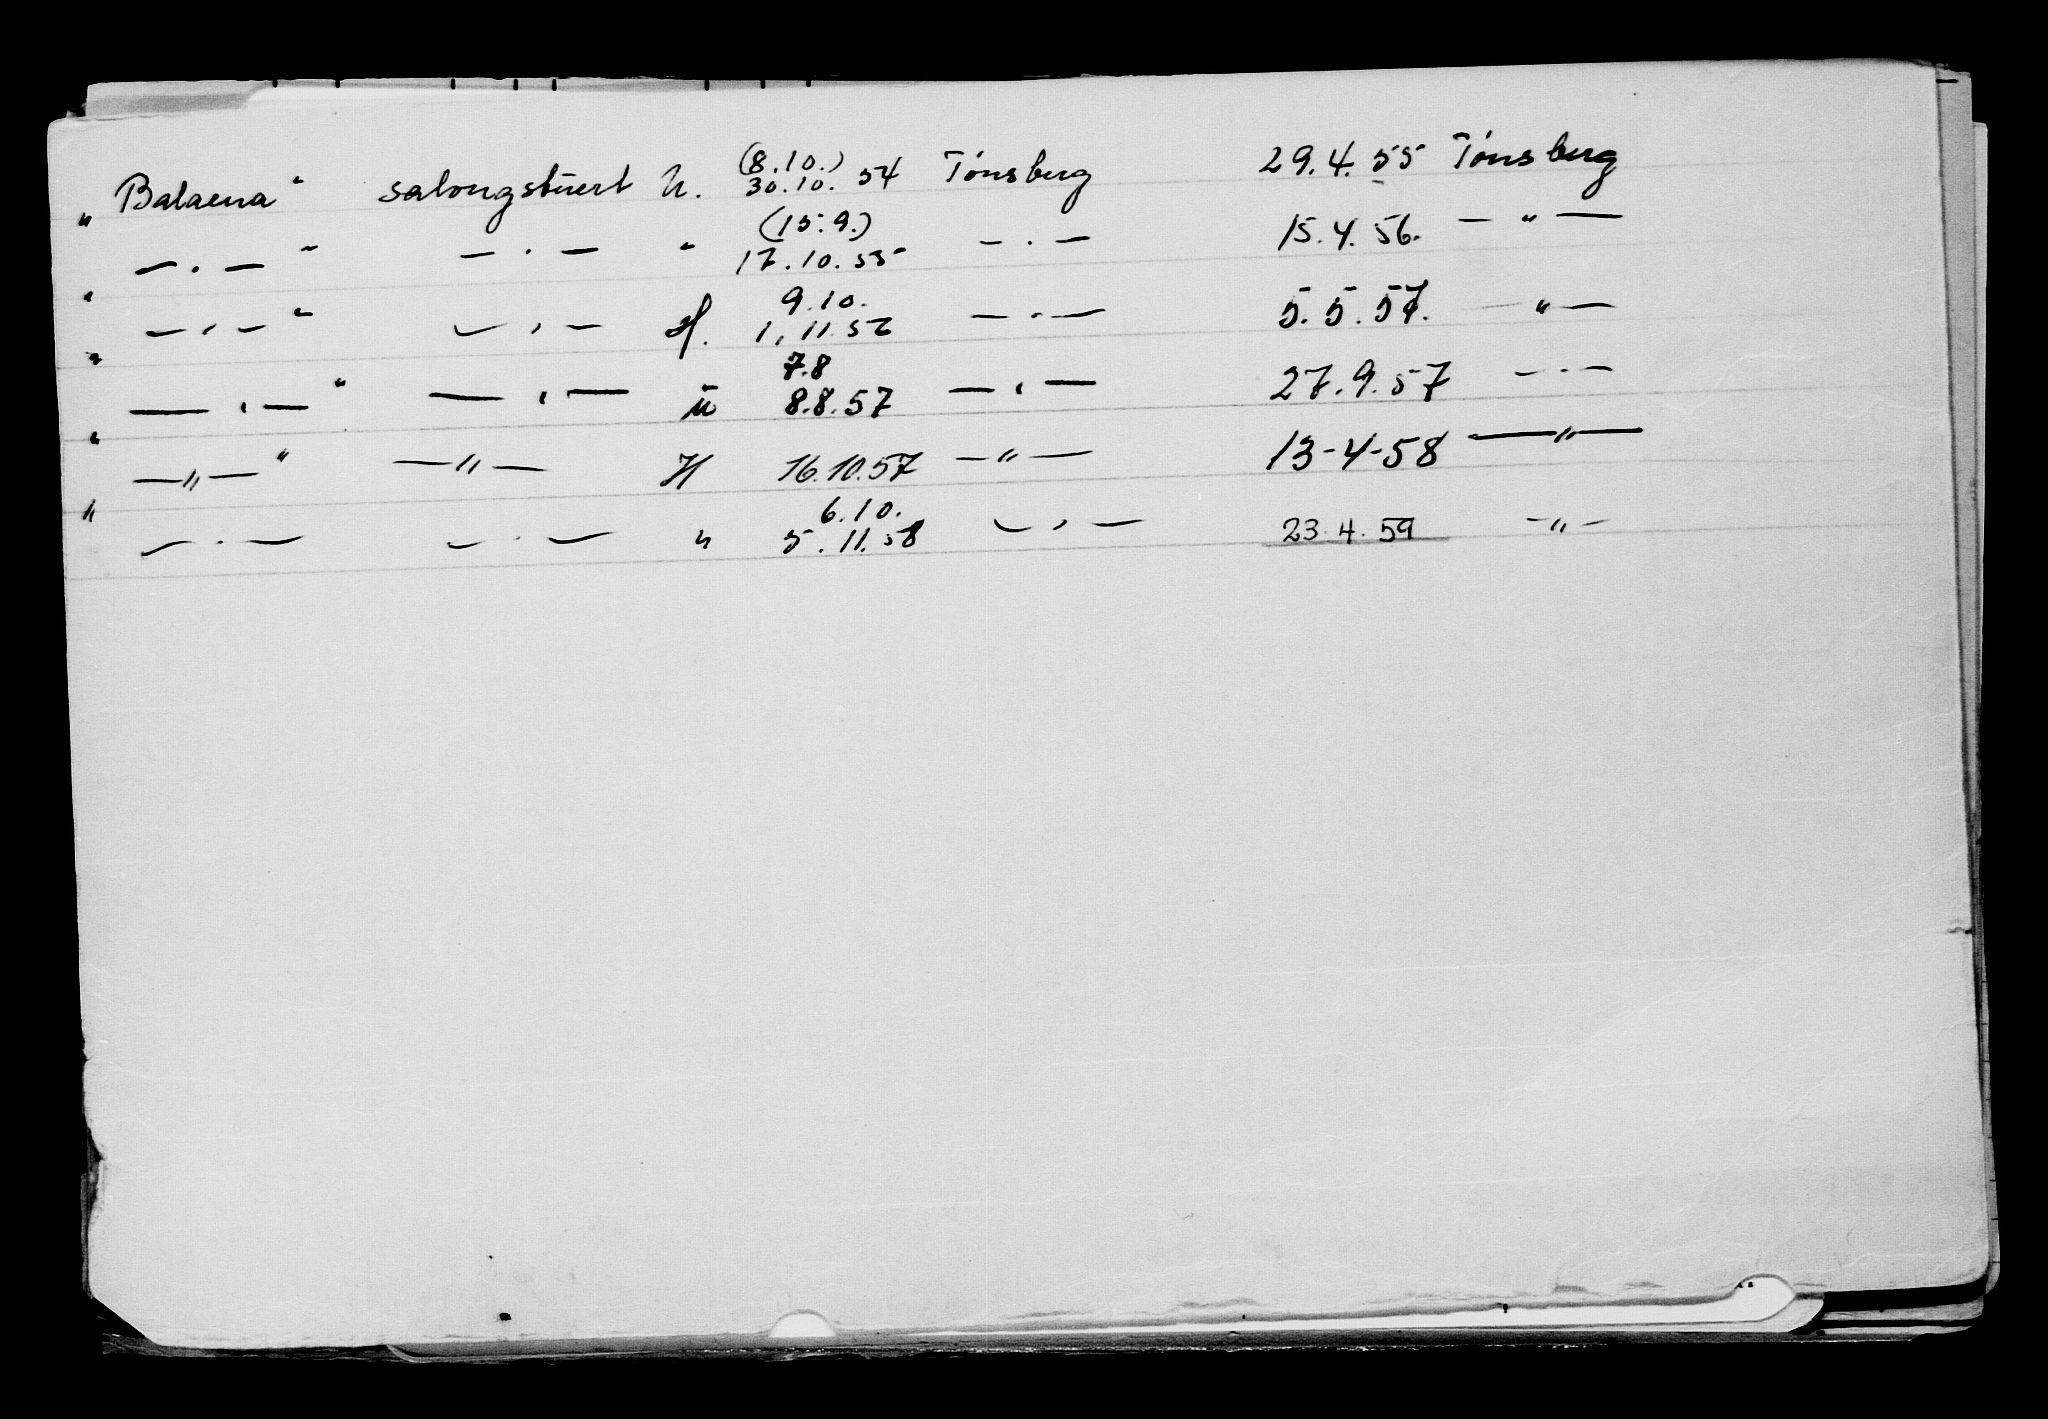 „Balaena“ salongstuert U. (8.10.) 30.10. 54 Tønsberg 29.4.55 Tønsberg
„ — . — “ — . — “ (15.9.) 17.10.55 — . — 15.4.56. — “ —
„ — , — “ — , — H. 9.10. 1.11.56 — . — 5.5.57. — “ —
„ — , — “ — , — U 7.8 8.8.57 — , — 27.9.57 — . —
„ — „ — “ — „ — H 16.10.57 — „ — 13-4-58 — „ —
„ — . — — . — " 6.10. 5.11.58 — , — 23.4.59 — „ —